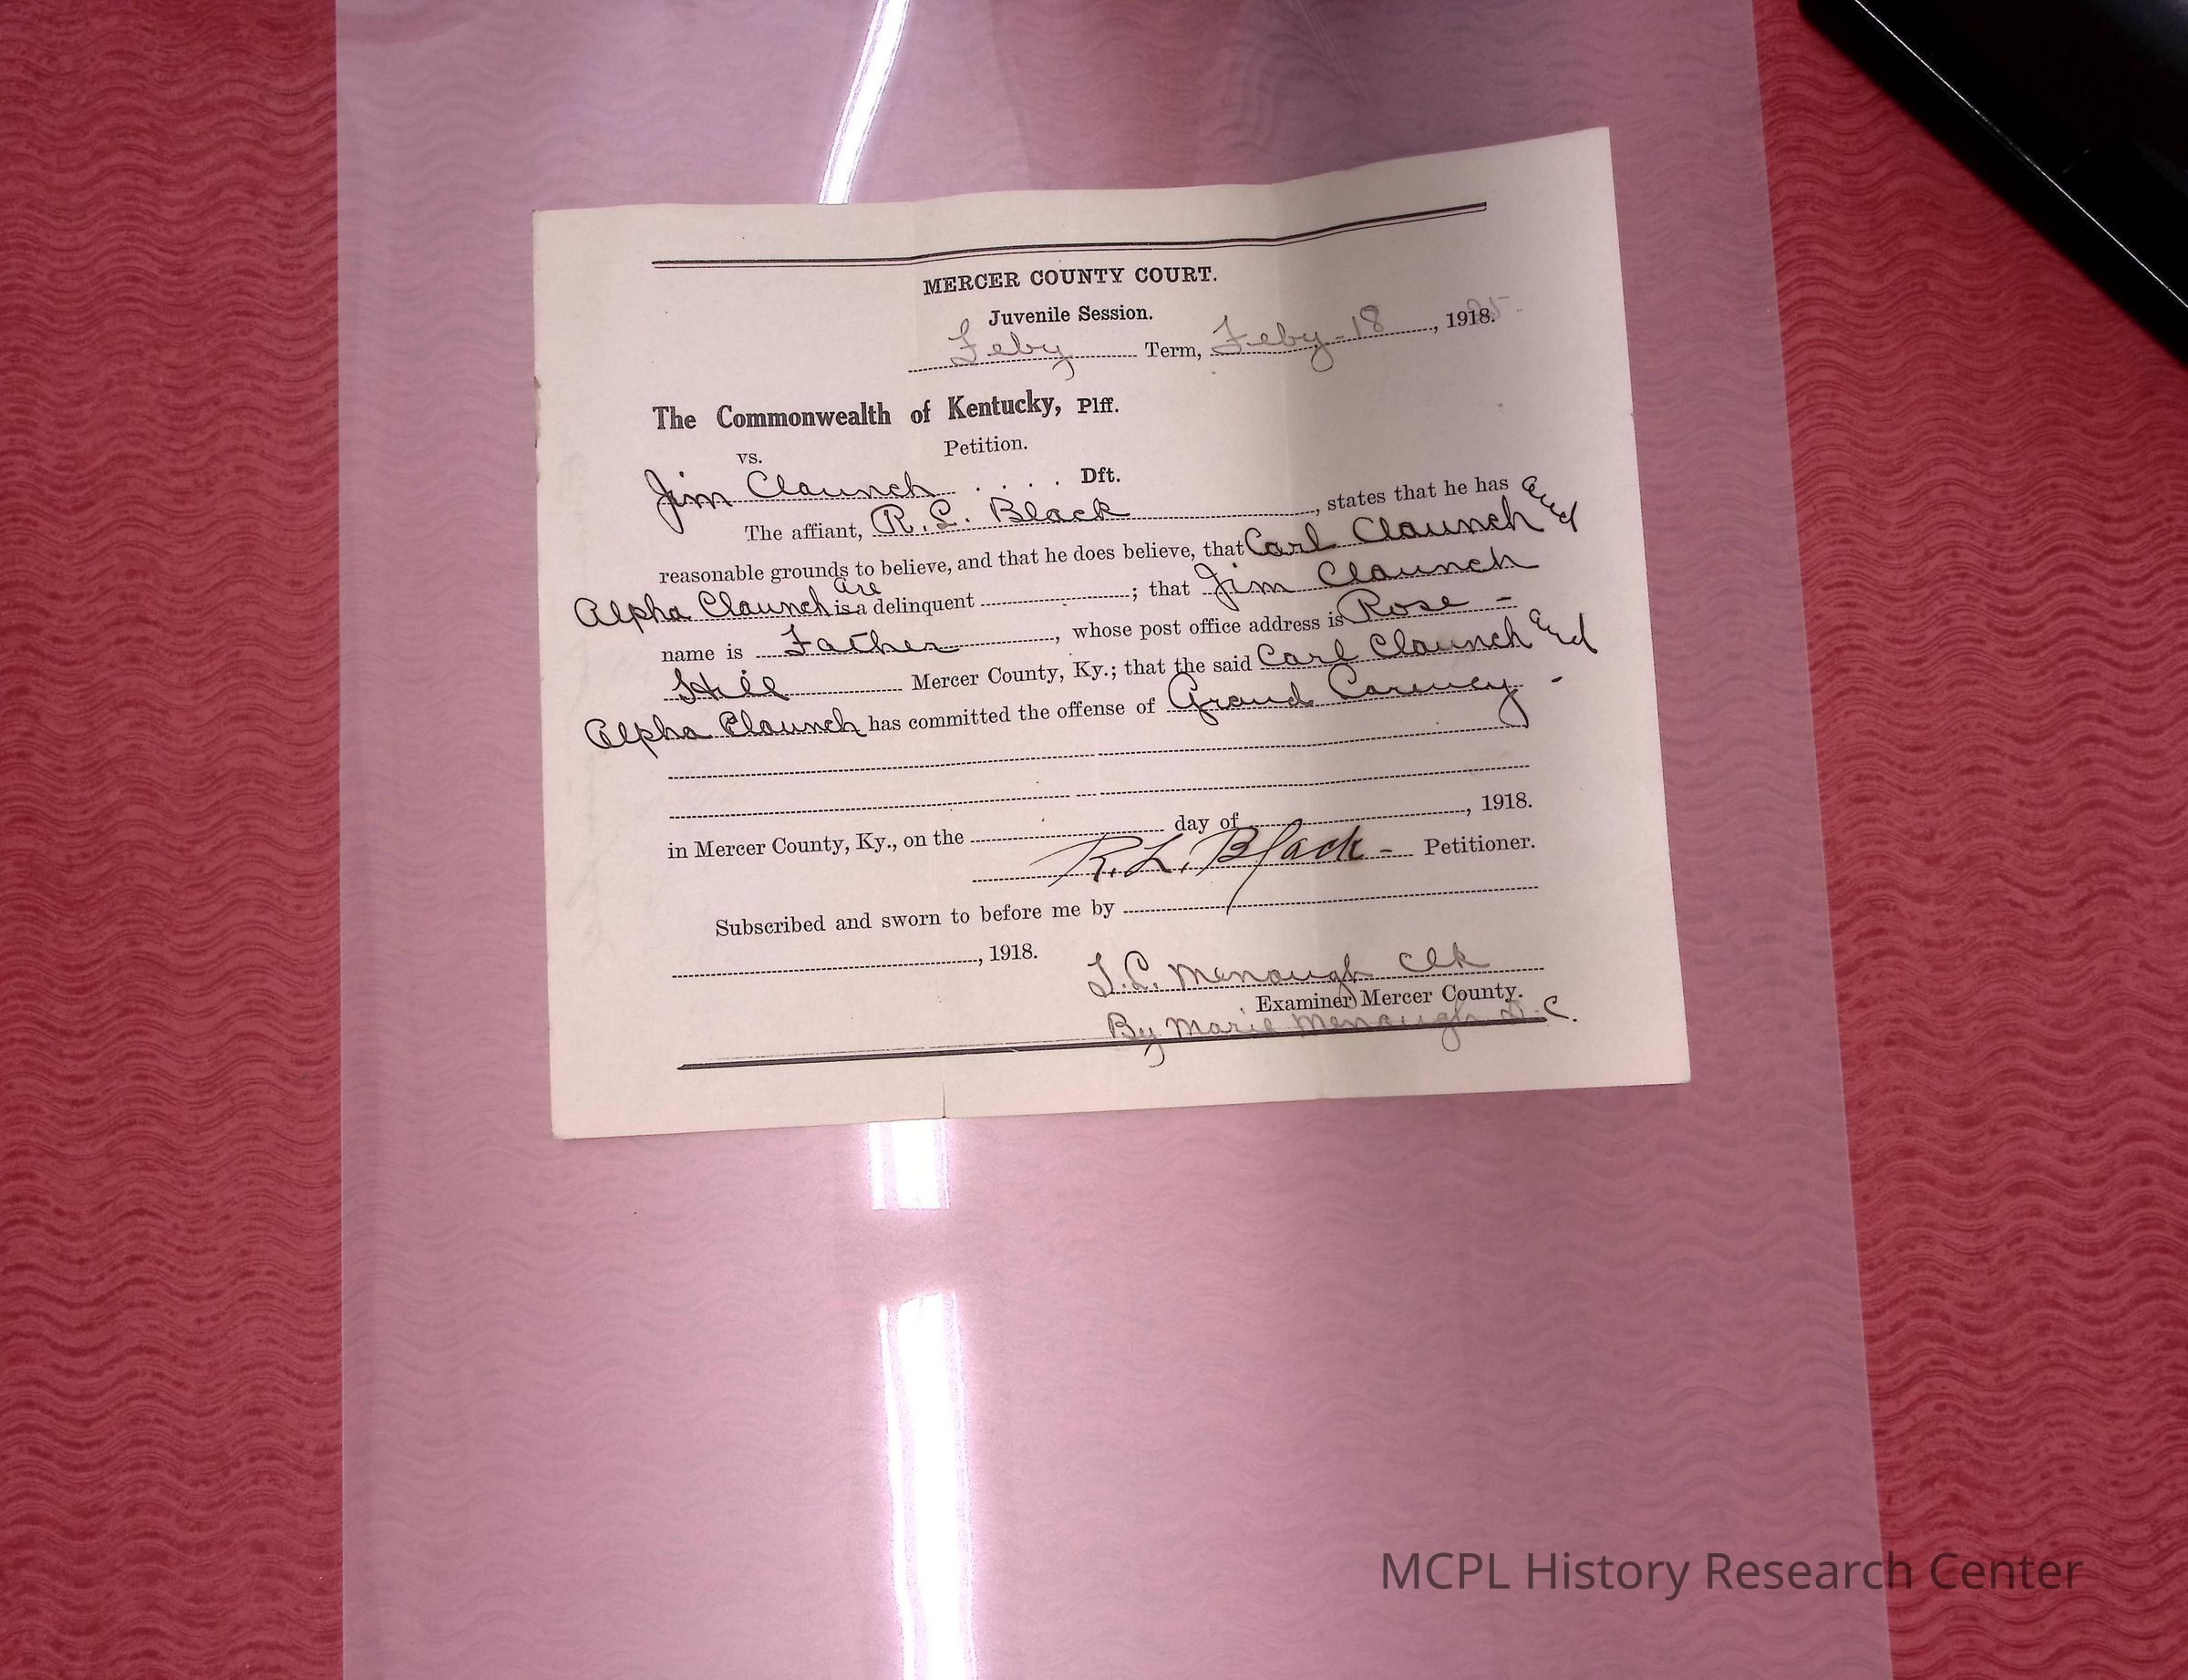 MERCER COUNTY COURT.
Juvenile Session.
Feby Term, Feby-18, 1918.
The Commonwealth of Kentucky, Plff.
vs. Petition.
Jim Claunch . . . . Dft.
The affiant, R.L. Black, states that he has
reasonable grounds to believe, and that he does believe, that Carl Claunch and
Alpha Claunch is a are delinquent ; that Jim Claunch
name is Father, whose post office address is Rose -
Hill Mercer County, Ky.; that the said Carl Claunch and
Alpha Claunch has committed the offense of Grand Larency -
in Mercer County, Ky., on the day of , 1918.
R.L. Black - Petitioner.
Subscribed and sworn to before me by
, 1918.
T.C. Menaugh Clk
Examiner Mercer County.
By Marie Menaugh D.C.
MCPL History Research Center